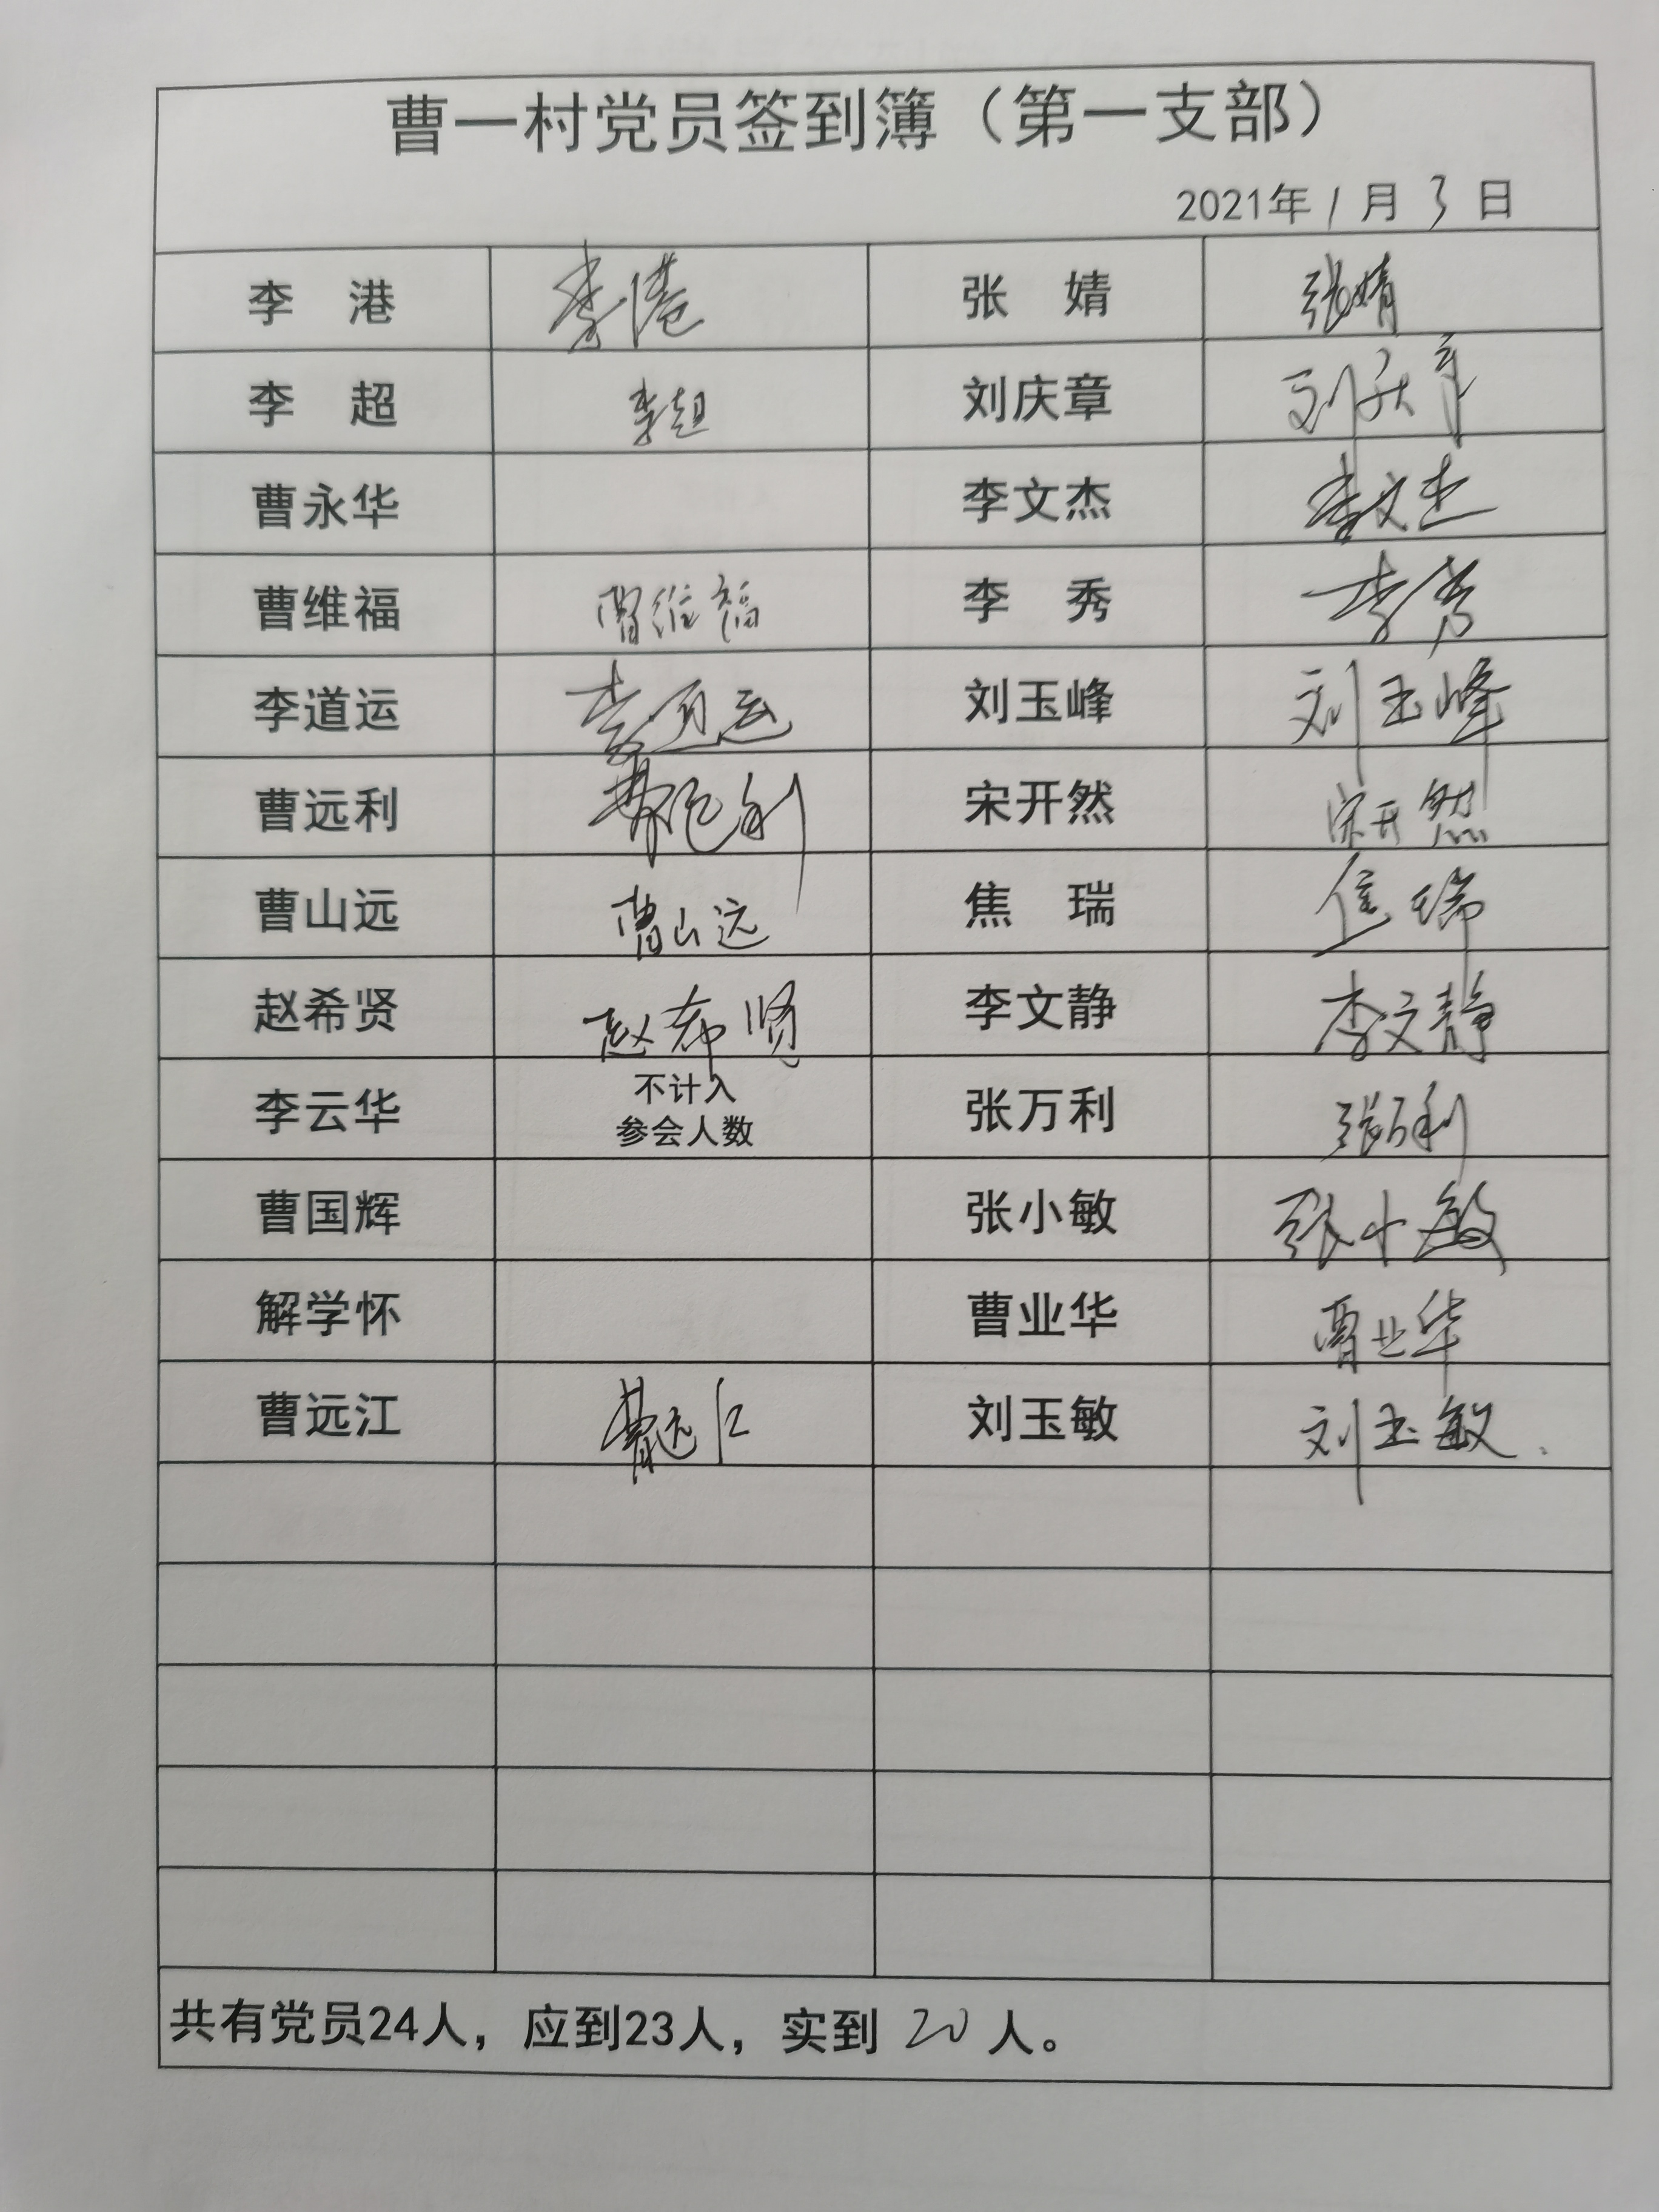 曹一村党员签到簿（第一支部）
2021年1月3日
李 港 李港 张 婧 张婧
李 超 李超 刘庆章 刘庆章
曹永华 李文杰 李文杰
曹维福 曹维福 李 秀 李秀
李道运 李道运 刘玉峰 刘玉峰
曹远利 曹远利 宋开然 宋开然
曹山远 曹山远 焦 瑞 焦瑞
赵希贤 赵希贤 李文静 李文静
李云华 不计入 张万利 张万利
参会人数
曹国辉 张小敏 张小敏
解学怀 曹业华 曹业华
曹远江 曹远江 刘玉敏 刘玉敏
共有党员24人，应到23人，实到20人。